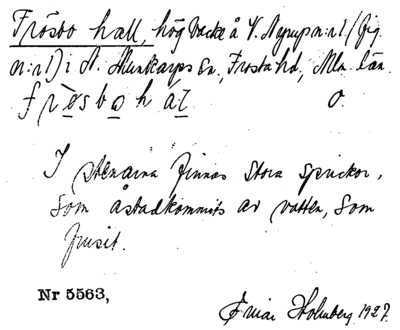 Frösbo hall, hög backe å V. Nyrups n:r 1 (Gig
n:r 1) i N. Munkarps sn, Frosta hd, Mlm. län.
frösboha̱l o.
I stenarna finnas stora sprickor,
som åstadkommits av vatten, som
frusit.
Nr 5563,
Holmberg 1927.